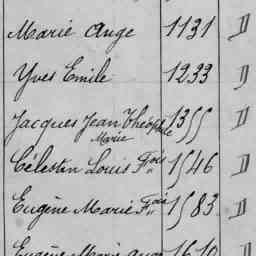 Marie Ange 1131 D
Yves Emile 1233 D
Jacques Jean Théophile 1355 D
Marie
Célestin Louis Fçois 1546 D
Eugène Marie Fçois 1583 D
Eugène Marie Ange 1610 D